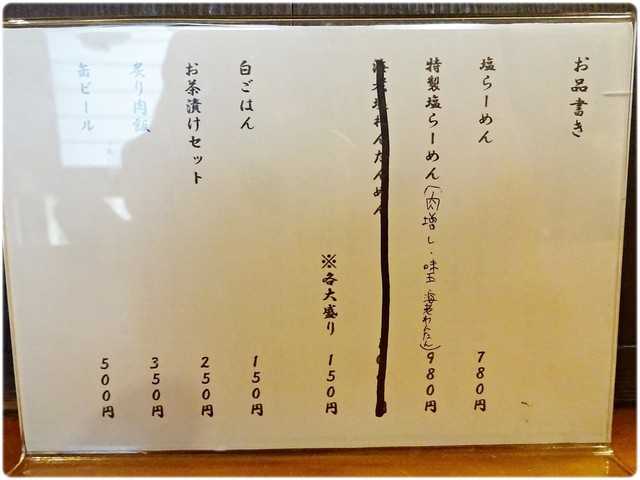 お品書き
塩らーめん 780円
特製塩らーめん(肉増し・味玉 海老わんたん) 980円
海老塩わんたんめん
※各大盛り 150円
白ごはん 150円
お茶漬けセット 250円
炙り肉飯 350円
缶ビール 500円